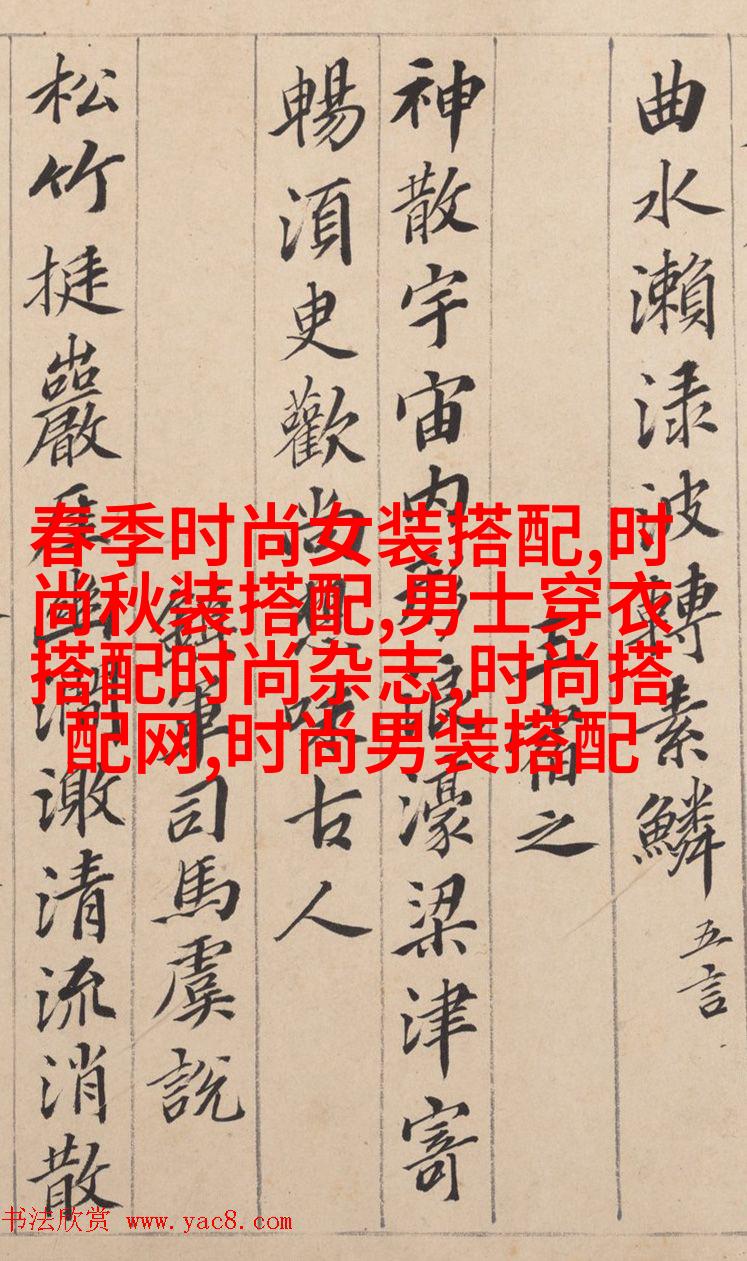 曲水瀨渌波轉素鱗 五言
王肅之
神散宇宙內形浪濠梁津寄
暢須臾歡尚想味古人
鎮軍司馬虞說
松竹挺巖崖幽澗激清流消散
春季时尚女装搭配,时
尚秋装搭配,男士穿衣
搭配时尚杂志,时尚搭
配网,时尚男装搭配
书法欣赏 www.yac8.com